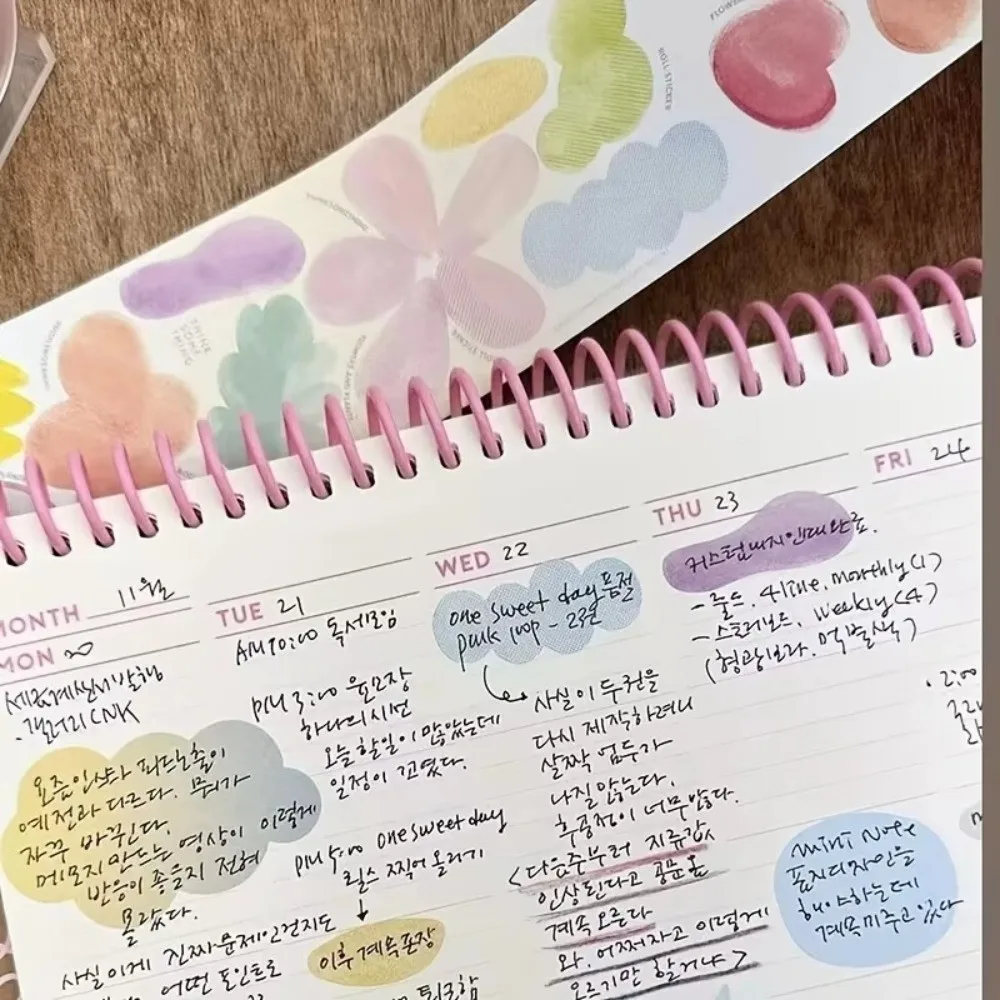 FLOWER
ROLL STICKER
THINKSOMETHING
THINK
SOME
THING
ROLL STICKER
MONTH 11월
MON 20
세금계산서 발행
· 갤러리 CNK
요즘 인스타 피드 노출이
예전과 다르다. 뭐가
자꾸 바뀐다.
메모지 만드는 영상이 이렇게
반응이 좋을지 전혀
몰랐다.
사실 이게 진짜 문제인건지도
어떤 포인트로
TUE 21
AM 10:00 독서모임
PM 3:00 윤모장
하나의 시선
오늘 할일이 많았는데
일정이 꼬였다.
PM 5:00 one sweet day
릴스 찍어 올리기
이후 계속 포장
WED 22
one sweet day 품절
pink loop - 2권
사실 이 두 권을
다시 제작하려니
살짝 엄두가
나질 않는다.
후공정이 너무 많다.
<다음주부터 지류값
인상된다고 공문 옴
계속 오른다
와. 어쩌자고 이렇게
오르기만 할거냐>
THU 23
커스텀 내지 인쇄 완료.
- 줄노트. 4line. monthly (1)
- 스토리노트. weekly (4)
(형광보라. 먹별색)
mini Note
표지디자인을
해야하는데
계속 미루고 있다
FRI 24
· 2:00